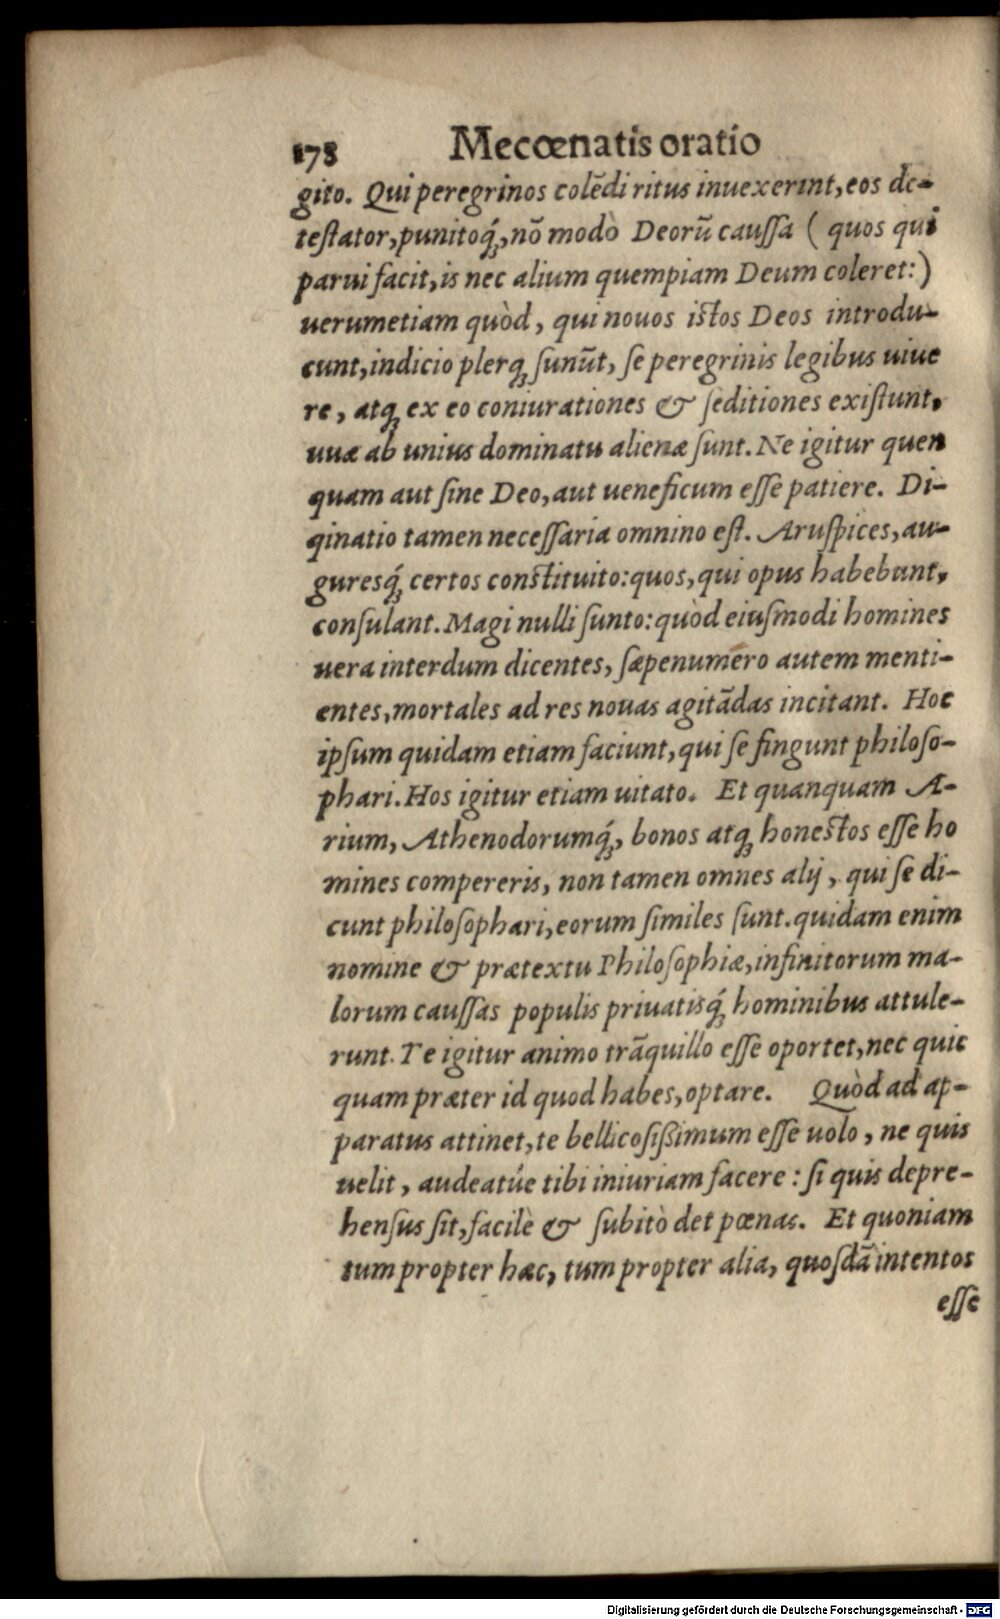 178 Mecœnatis oratio
gito. Qui peregrinos colẽdi ritus inuexerint, eos de-
testator, punitoq́;, nõ modò Deorũ caussa ( quos qui
parui facit, is nec alium quempiam Deum coleret: )
uerumetiam quòd, qui nouos istos Deos introdu-
cunt, indicio plerq; sunũt, se peregrinis legibus uiue
re, atq; ex eo coniurationes & seditiones existunt,
uuæ ab unius dominatu alienæ sunt. Ne igitur quen
quam aut sine Deo, aut ueneficum esse patiere. Di-
qinatio tamen necessaria omnino est. Aruspices, au-
guresq́; certos constituito: quos, qui opus habebunt,
consulant. Magi nulli sunto: quòd eiusmodi homines
uera interdum dicentes, sæpenumero autem menti-
entes, mortales ad res nouas agitãdas incitant. Hoc
ipsum quidam etiam faciunt, qui se fingunt philoso-
phari. Hos igitur etiam uitato. Et quanquam A-
rium, Athenodorumq́;, bonos atq; honestos esse ho
mines compereris, non tamen omnes alij, qui se di-
cunt philosophari, eorum similes sunt. quidam enim
nomine & prætextu Philosophiæ, infinitorum ma-
lorum caussas populis priuatisq́; hominibus attule-
runt. Te igitur animo trãquillo esse oportet, nec quic
quam præter id quod habes, optare. Quòd ad ap-
paratus attinet, te bellicosißimum esse uolo, ne quis
uelit, audeatúe tibi iniuriam facere: si quis depre-
hensus sit, facilè & subitò det pœnas. Et quoniam
tum propter hæc, tum propter alia, quosdã intentos
esse
Digitalisierung gefördert durch die Deutsche Forschungsgemeinschaft - DFG